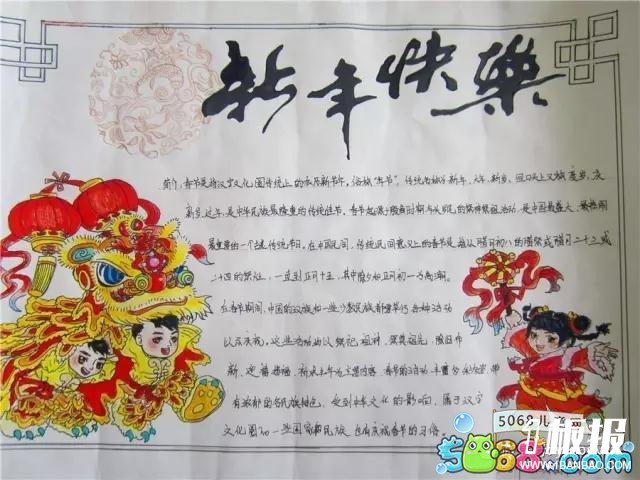 新年快樂
春节是指汉字文化圈传统上的农历新年,俗称"春节",传统名称为新年、大年、新岁,但口头上又称度岁、庆
新岁、过年,是中华民族最隆重的传统佳节。春节起源于殷商时期年头岁尾的祭神祭祖活动,是中国最盛大、最热闹
最重要的一个古老传统节日。在中国民间,传统民间意义上的春节是指从腊月初八的腊祭或腊月二十三或
二十四的祭灶,一直到正月十五,其中除夕和正月初一为高潮。
在春节期间,中国的汉族和一些少数民族都要举行各种活动
以示庆祝。这些活动均以祭祀祖神、祭奠祖先、除旧布
新、迎禧接福、祈求丰年为主要内容。春节的活动丰富多彩,带
有浓郁的各民族特色。受到中华文化的影响,属于汉字
文化圈的一些国家和民族也有庆祝春节的习俗。
5068儿
5068.com
板报
WWW.1BANBAO.COM